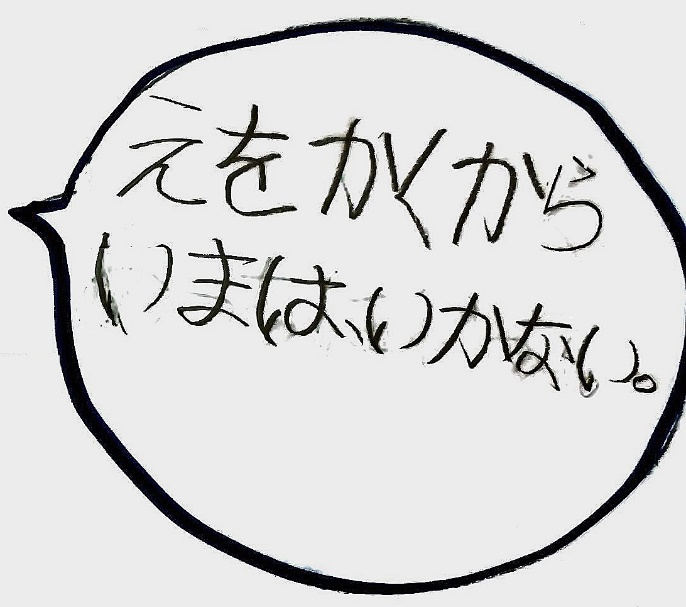 えをかくから
いまは、いかない。